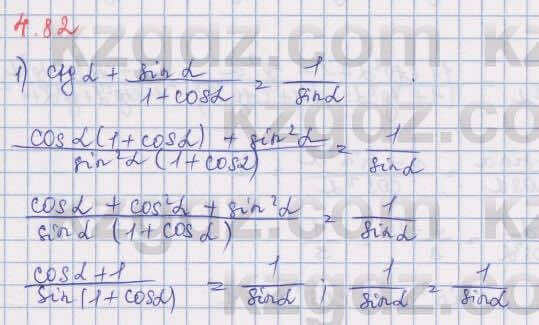 4.82
1) ctg α + sin α / (1 + cos α) = 1 / sin α
(cos α (1 + cos α) + sin² α) / (sin² α (1 + cos α)) = 1 / sin α
(cos α + cos² α + sin² α) / (sin α (1 + cos α)) = 1 / sin α
(cos α + 1) / (sin (1 + cos α)) = 1 / sin α ; 1 / sin α = 1 / sin α